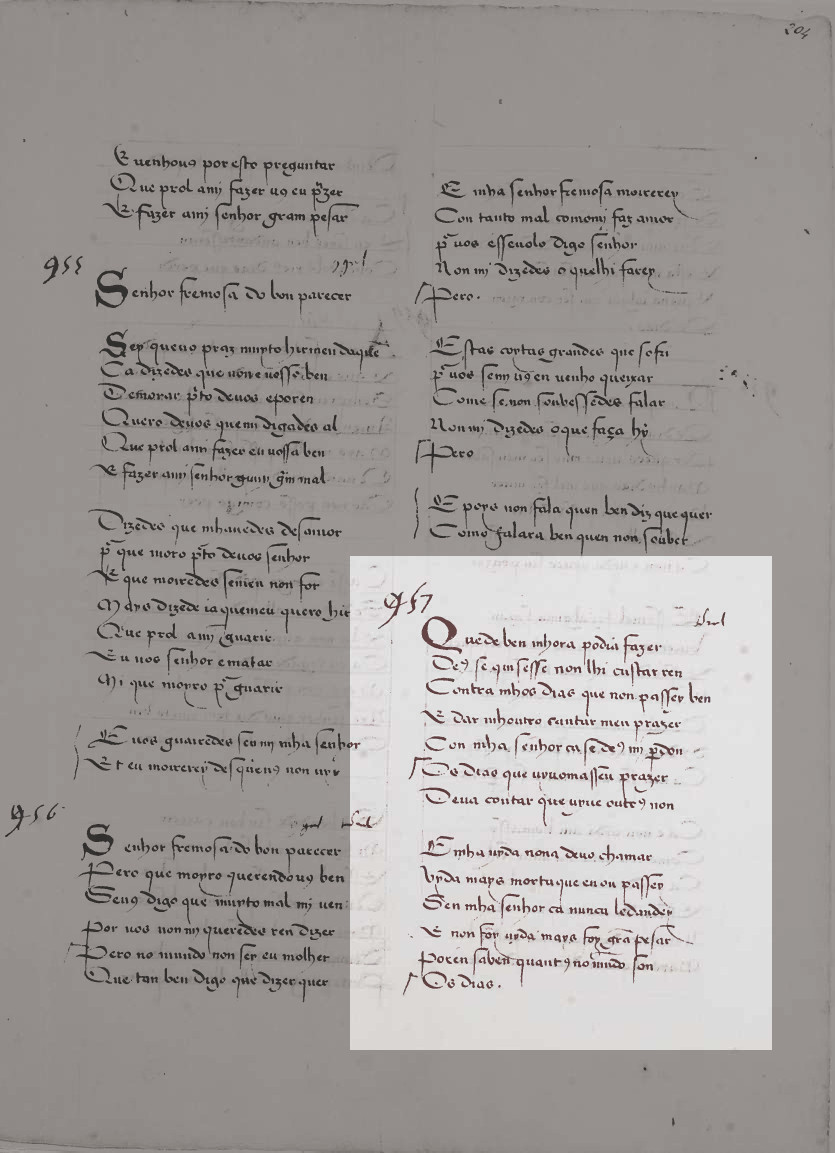 204
E uenhouꝯ por esto preguntar
Que prol amj fazer uꝯ eu pͣzer
E fazer amj senhor gram pesar
955
Senhor fremosa do bon parecer
Sey queuꝯ praz muyto hirmeu daquē
Ca dizedes que none uosso ben
Demorar pͣto deuos eporen
Quero deuos quemi digades al
Que prol amj fazer eu uossa ben
E fazer amj senhor gͣm mal
Dizedes que mhauedes desamor
pͣ que moro pͣto deuos senhor
E que moiredes semen non for
Mays dizede ia quemeu quero hir
Que prol amj guarir
Eu uos senhor ematar
Mi que moyro pͣ guarir
E uos guairedes sen mj mha senhor
Et eu moirerey des quenꝯ non uyr
956
Senhor fremosa do bon parecer
Pero que moyro querendouꝯ ben
Seuꝯ digo que muyto mal mj uen
Por uos non mj queredes ren dizer
Pero no mundo non sey eu molher
Que tan ben digo que dizer quer
E mha senhor fremosa moirerey
Con tanto mal comomj faz amor
pͣ uos esseuolo digo senhor
Non mj dizedes o quelhi farey
Pero.
Estas coytas grandes que sofri
pͣ uos semj uꝯ en uenho queixar
Come se non souessedes falar
Non mj dizedes o que faça hy
Pero
E poys non fala quen ben diz que quer
Como falara ben quen non souber
957
Quede ben mhora podia fazer
Deꝯ se qui sesse non lhi custar ren
Contra mhos dias que non passey ben
E dar mhoutro cantar meu prazer
Con mha senhor ca se deꝯ mj pͣdon
Os dias que uyuomassen prazer
Deua contar que uyue outrꝯ non
E mha uyda nona deuo chamar
Vyda mays morta que en ou passey
Sen mha senhor ca nunca ledandey
E non foy uyda mays foy grā pesar
Poren saben quantꝯ no mūdo son
Os dias.